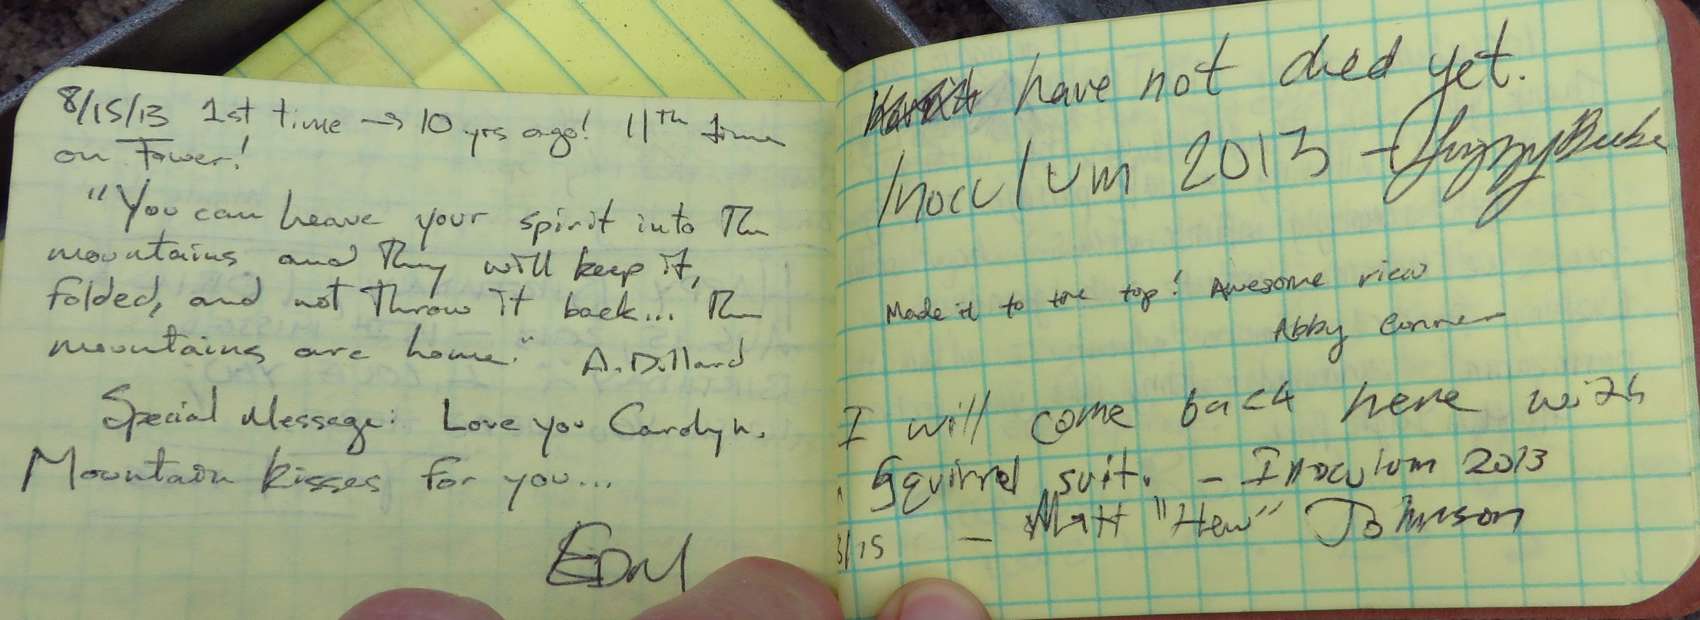 8/15/13 1st time → 10 yrs ago! 11th time
on Tower!
"You can heave your spirit into the
mountains and they will keep it,
folded, and not throw it back... The
mountains are home." A. Dillard
Special Message: Love you Carolyn.
Mountain kisses for you...
have not died yet.
Inoculum 2013 -
Made it to the top! Awesome view
Abby Conner
I will come back here with
Squirrel suit. - Inoculum 2013
8/15 - Matt "Hew" Johnson